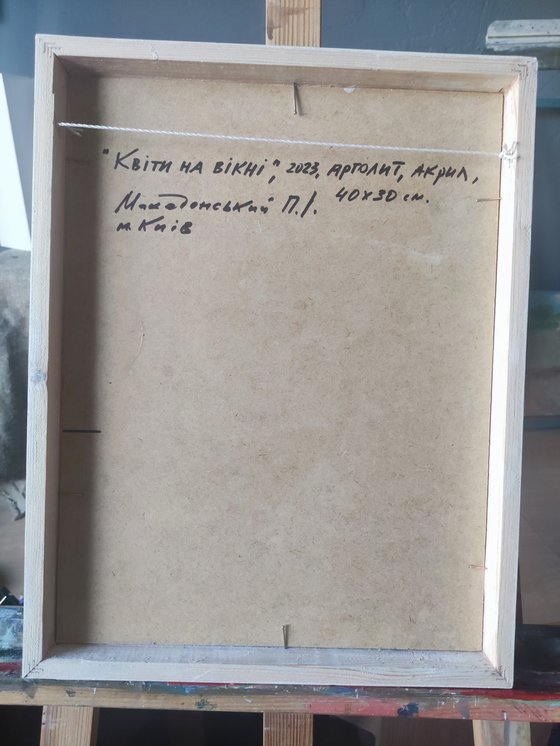 "Квіти на вікні", 2023, арголит, акрил,
Македонський П.І. 40х30 см.
м. Київ